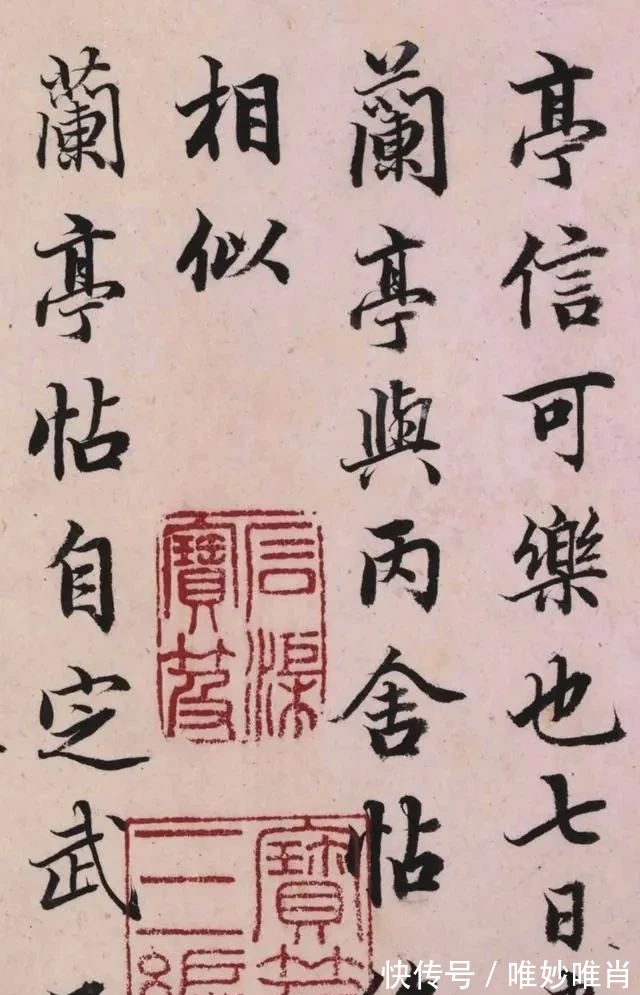 亭信可樂也七日
蘭亭與丙舍帖
相似
蘭亭帖自定武
石渠
寶笈
寶笈
三編
快传号 / 唯妙唯肖